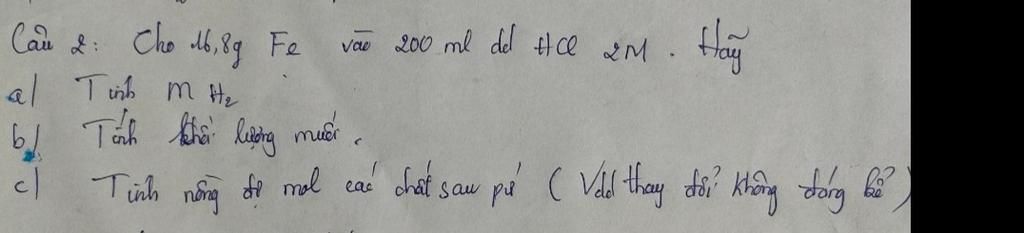 Câu 2: Cho 16,8g Fe vào 200 ml dd HCl 2M. Hãy
a/ Tính m H₂
b/ Tính khối lượng muối.
c/ Tính nồng độ mol các chất sau pứ (Vdd thay đổi không đáng kể)